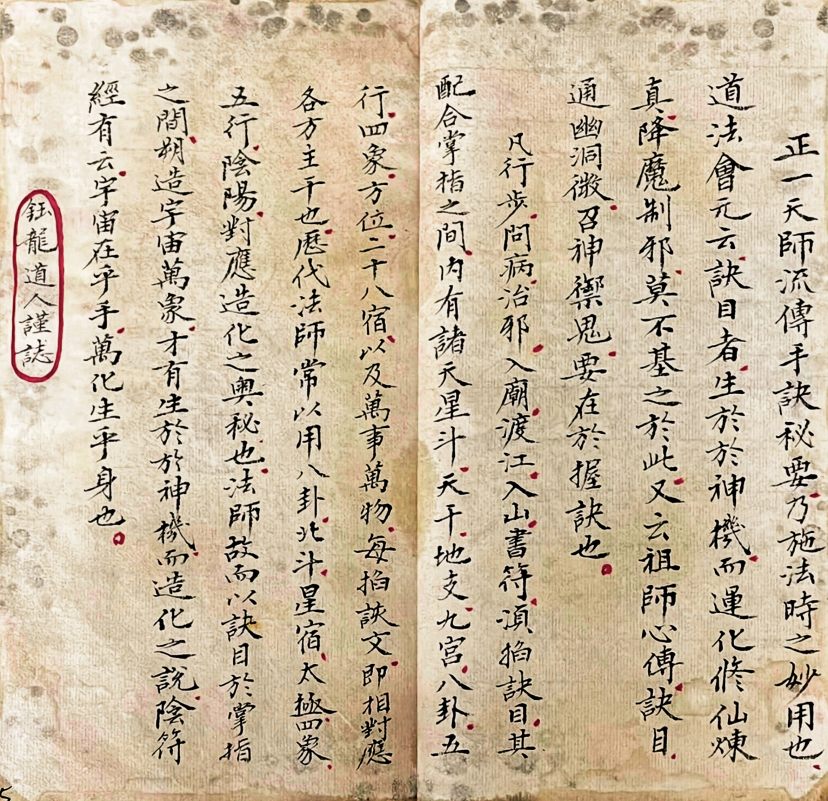 正一天師流傳手訣秘要乃施法時之妙用也
道法會元云訣目者生於於神機而運化修仙煉
真降魔制邪莫不基之於此又云祖師心傳訣目
通幽洞微召神禦鬼要在於握訣也。
凡行步問病治邪入廟渡江入山書符須掐訣目其
配合掌指之間內有諸天星斗天干地支九宮八卦五
行四象方位二十八宿以及萬事萬物每掐訣文即相對應
各方主干也歷代法師常以用八卦北斗星宿太極四象
五行陰陽對應造化之奧秘也法師故而以訣目於掌指
之間朔造宇宙萬象才有生於於神機而造化之說陰符
經有云宇宙在乎手萬化生乎身也。
鈺龍道人謹誌
5